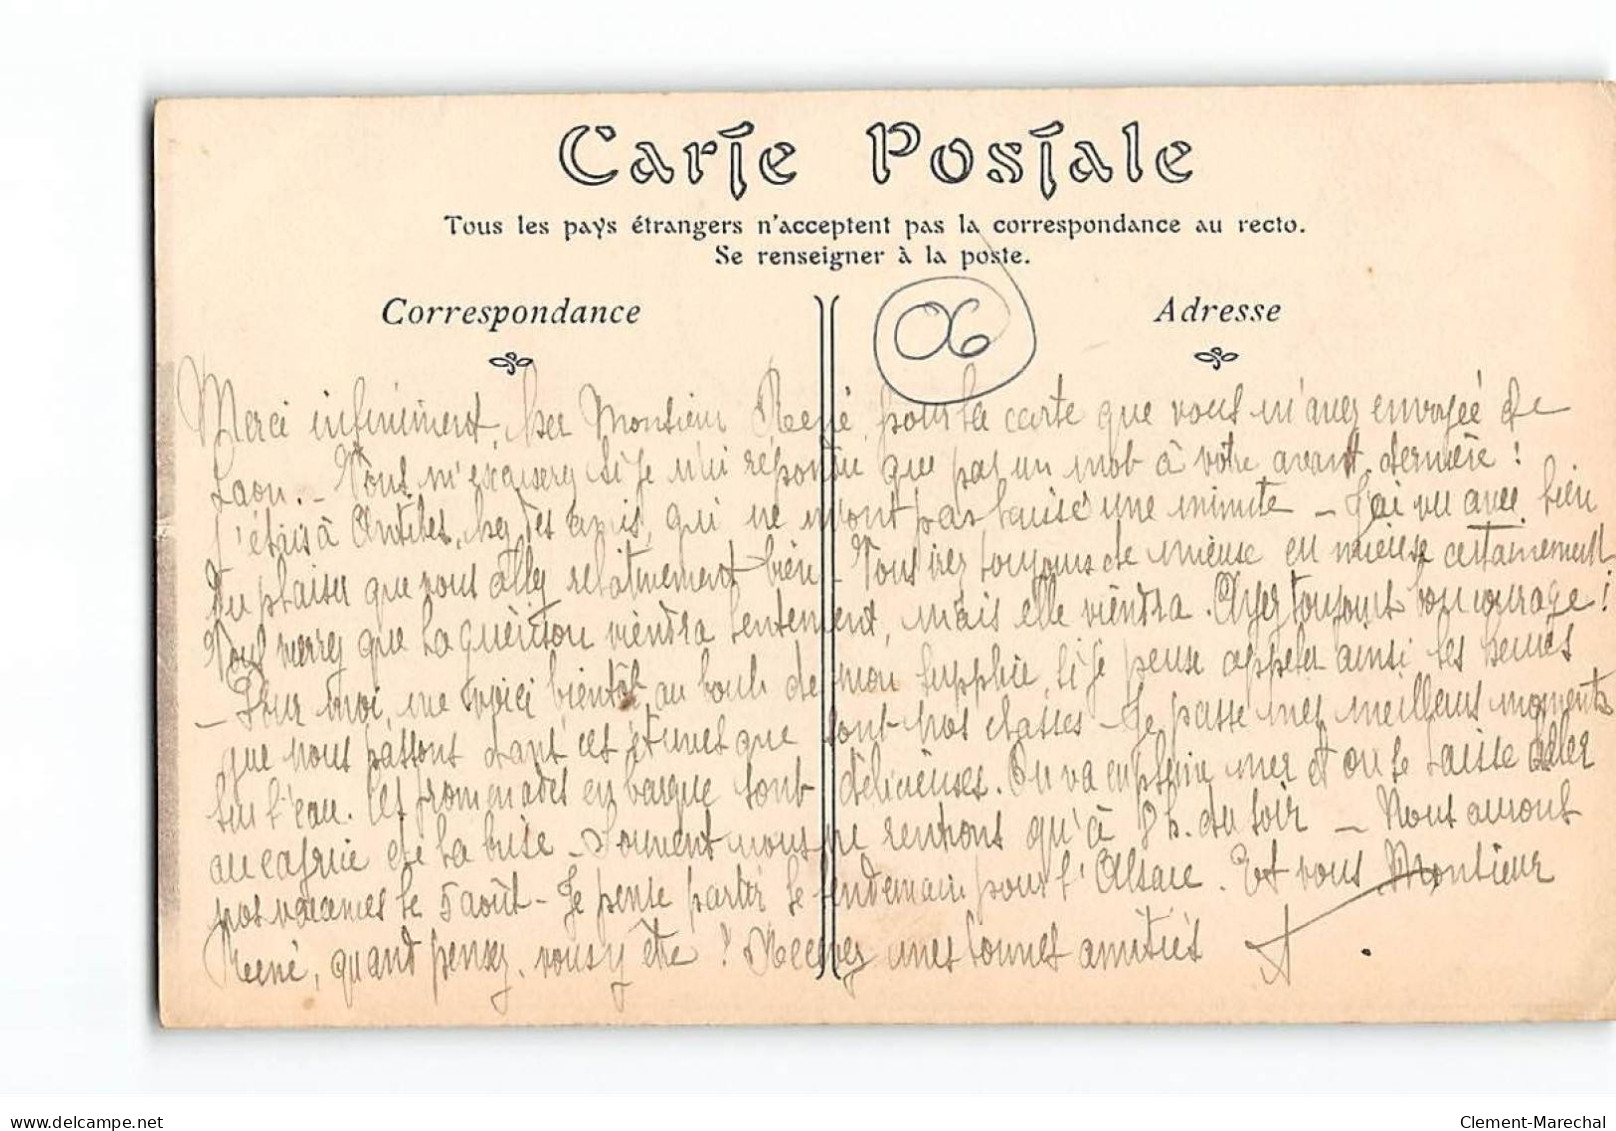 Carte Postale
Tous les pays étrangers n'acceptent pas la correspondance au recto.
Se renseigner à la poste.
Correspondance
Adresse
06
Merci infiniment, cher Monsieur René, pour la carte que vous m'avez envoyée de
Laon. - Vous m'excuserez si je n'ai répondu que par un mot à votre avant dernière !
J'étais à Antibes, chez des amis, qui ne m'ont pas laissé une minute - J'ai vu avec bien
du plaisir que vous alliez relativement bien - Vous irez toujours de mieux en mieux certainement
Vous verrez que la guérison viendra lentement, mais elle viendra. Ayez toujours bon courage !
- Pour moi, me voici bientôt au bout de mon supplice, si je peux appeler ainsi les heures
que nous passons dans ces études que sont nos classes - Je passe mes meilleurs moments
sur l'eau. Ces promenades en barque sont délicieuses. On va en pleine mer et on se laisse aller
au caprice de la brise - Souvent nous ne rentrons qu'à 8 h. du soir - Nous aurons
nos vacances le 5 août - Je pense partir le lendemain pour l'Alsace. Et vous Monsieur
René, quand pensez vous y être ? Recevez mes bonnes amitiés
delcampe.net
Clement-Marechal